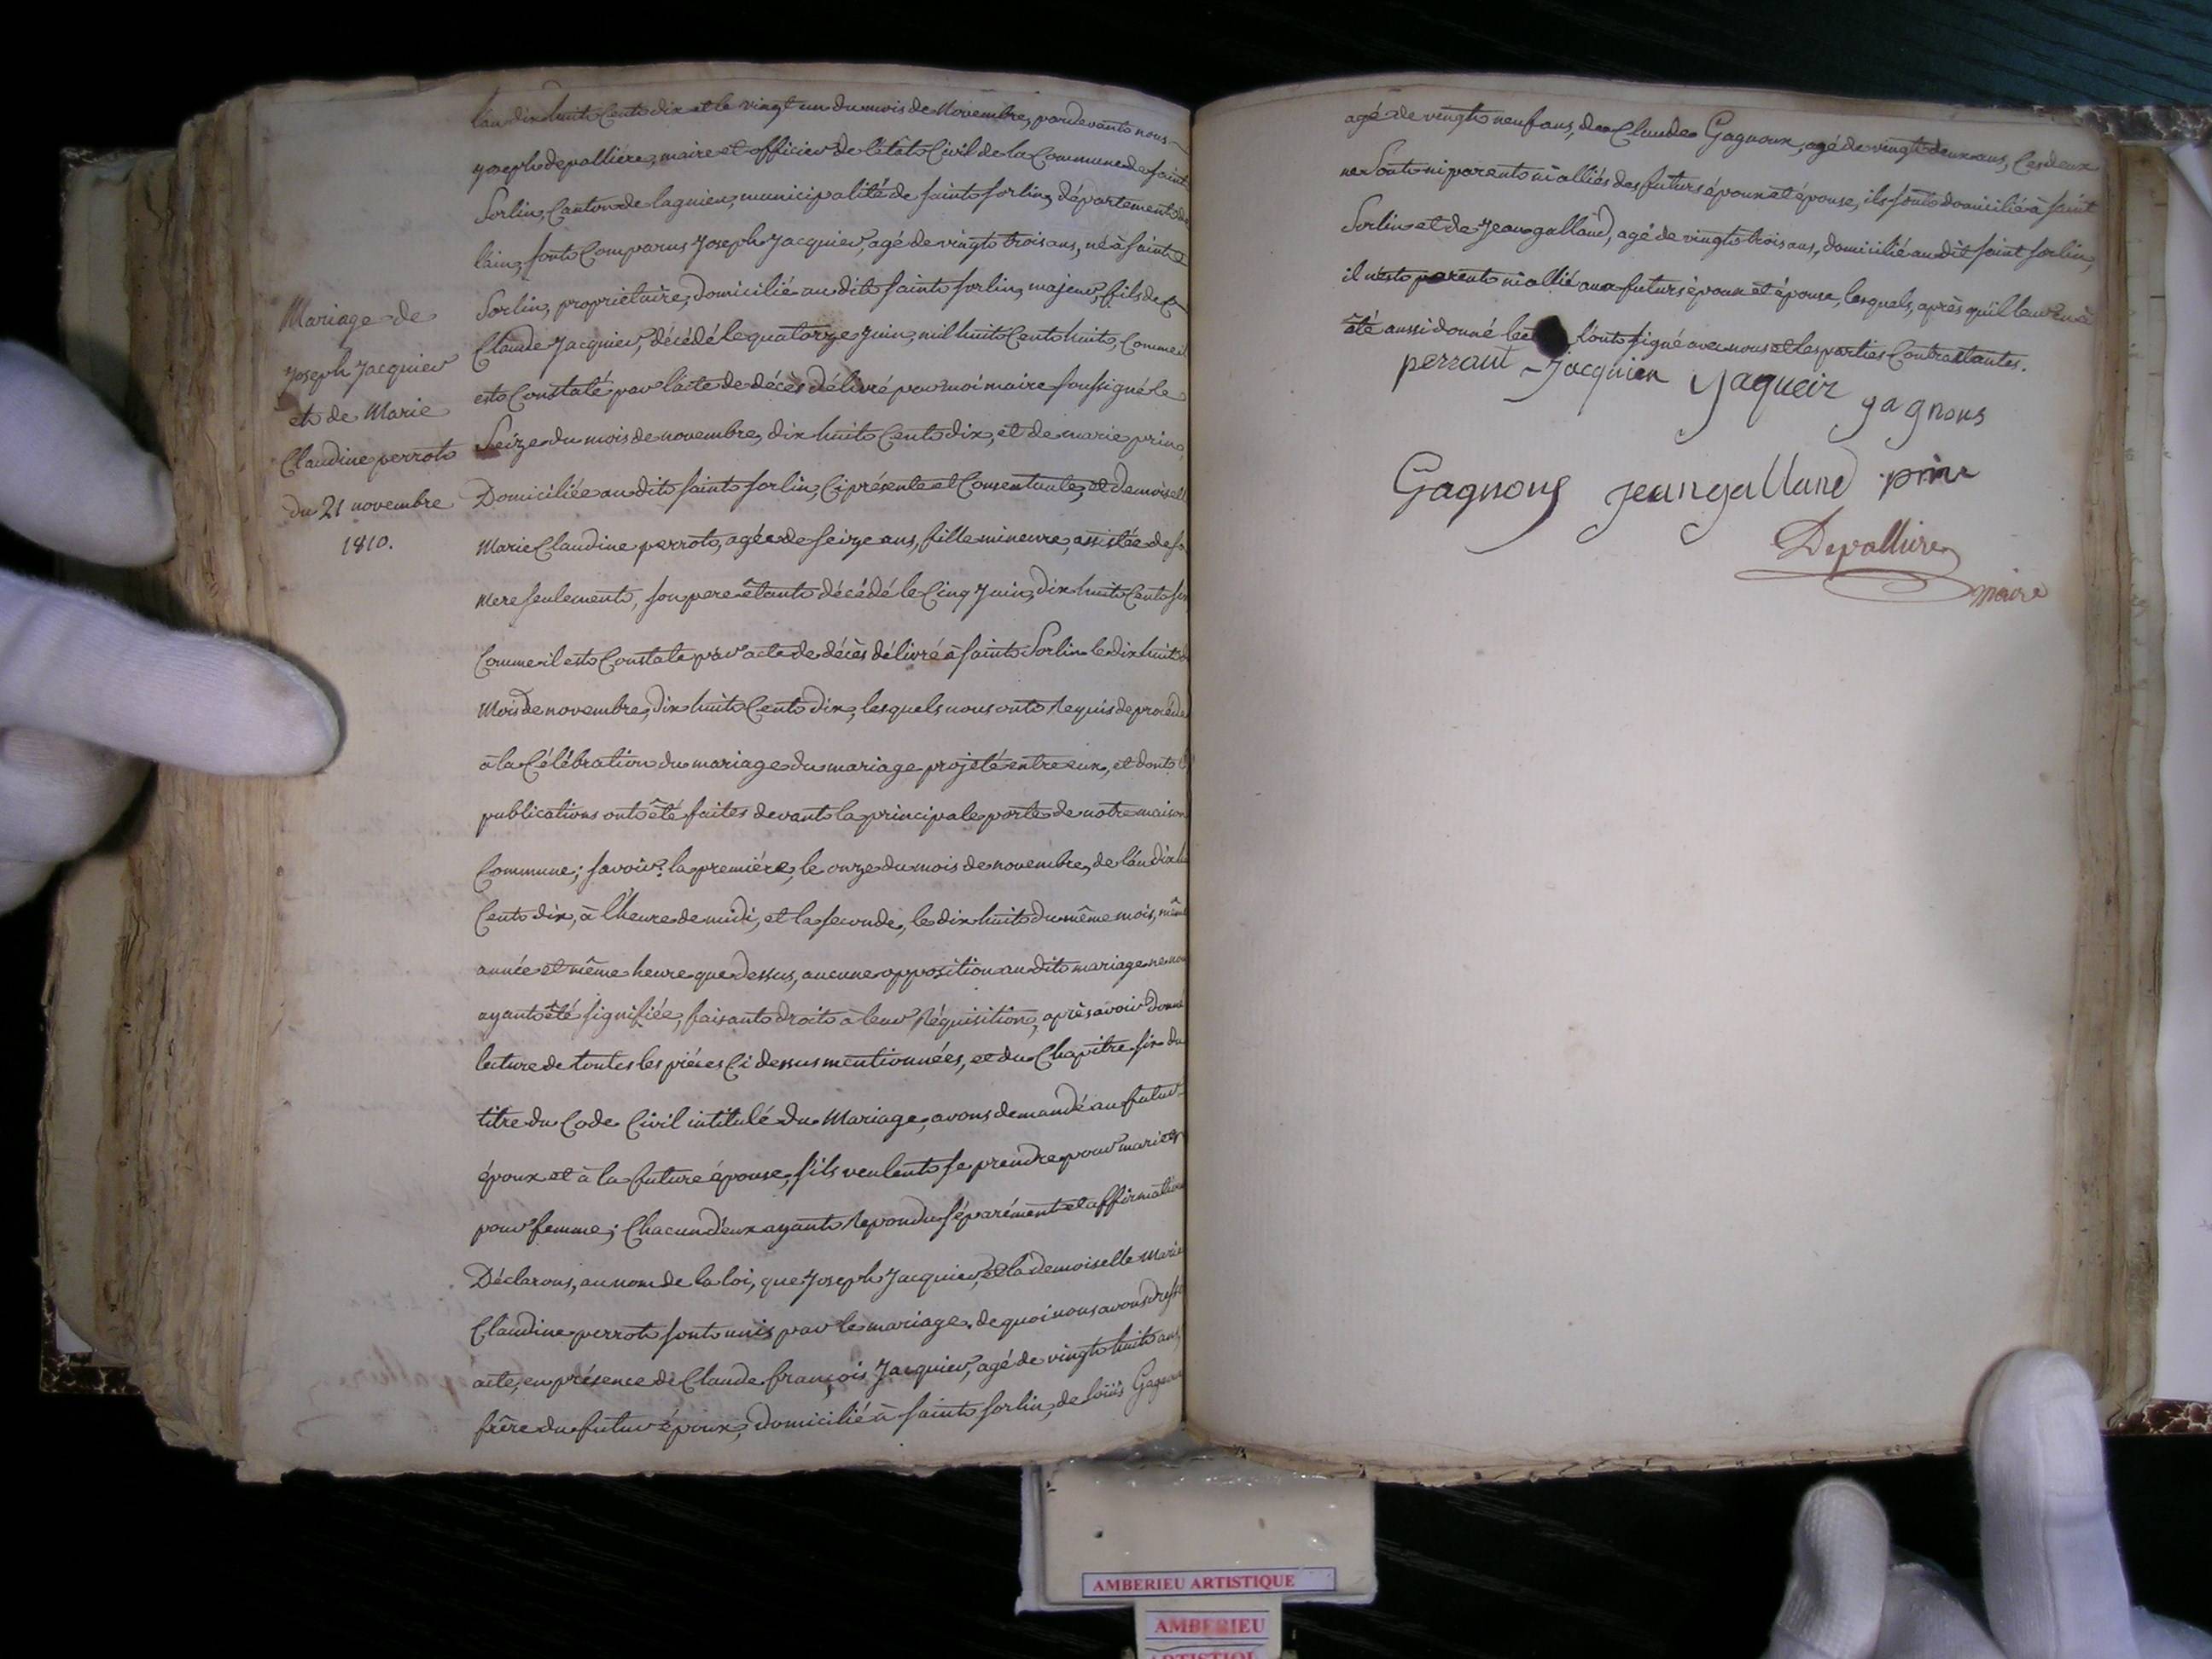 Mariage de
Joseph Jacquier
et de Marie
Claudine perrot
du 21 novembre
1810.
l'an dix huit Cent dix et le vingt un du mois de Novembre, pardevant nous
joseph depalliére, maire et officier de l'état Civil de la Commune de saint
Sorlin, Canton de lagnieu, municipalité de saint sorlin, département de
lain, sont Comparus Joseph Jacquier, agé de vingt trois ans, né à saint
Sorlin, propriétaire, domicilié au dit saint sorlin, majeur, fils de
Claude Jacquier, décédé le quatorze Juin, mil huit Cent huit, Comme il
est Constaté par l'acte de décès délivré par moi maire soussigné le
Seize du mois de novembre, dix huit Cent dix, et de marie prin,
Domiciliée au dit saint sorlin, Ci présente et Consentente, et demoiselle
Marie Claudine perrot, agée de seize ans, fille mineure, assistée de sa
mere seulement, son pere êtant décédé le Cinq Juin, dix huit Cent
Comme il est Constaté par acte de décès délivré à saint Sorlin le dix huit
Mois de novembre, dix huit Cent dix, lesquels nous ont requis de procéder
à la Célébration du mariage du mariage projeté entre eux, et dont
publications ont êté faites devant la principale porte de notre maison
Commune; savoir: la première, le onze du mois de novembre, de l'an dix
Cent dix, à l'heure de midi, et la seconde, le dix huit du même mois, même
année et même heure que dessus, aucune opposition au dit mariage ne
ayant êté signifiée, faisant droit à leur réquisition, après avoir donné
lecture de toutes les piéces Ci dessus mentionnées, et du Chapitre six du
titre du Code Civil intitulé du Mariage, avons demandé au futur
époux et à la future épouse, s'ils veulent se prendre pour mari et
pour femme; Chacun d'eux ayant repondu séparément et affirmative
Déclarons, au nom de la loi, que Joseph Jacquier, et la demoiselle Marie
Claudine perrot sont unis par le mariage. de quoi nous avons dressé
acte, en présence de Claude françois Jacquier, agé de vingt huit ans,
frère du futur époux, domicilié à saint sorlin, de louis Gagnoux
agé de vingt neuf ans, de Claude Gagnoux, agé de vingt deux ans, les deux
ne Sont ni parents ni alliés des futurs époux et épouse, ils sont domicilié à saint
Sorlin et de Jean galland, agé de vingt trois ans, domicilié au dit saint sorlin,
il n'est parent ni allié aux futurs époux et épouse, lesquels, après qu'il leur en à
êté aussi donné l'ont signé avec nous et les parties Contractantes.
perraut Jacquier Jaqueir gagnous
Gagnous jean galland prin
Depalliere
maire
AMBERIEU ARTISTIQUE
AMBERIEU
ARTISTIQUE